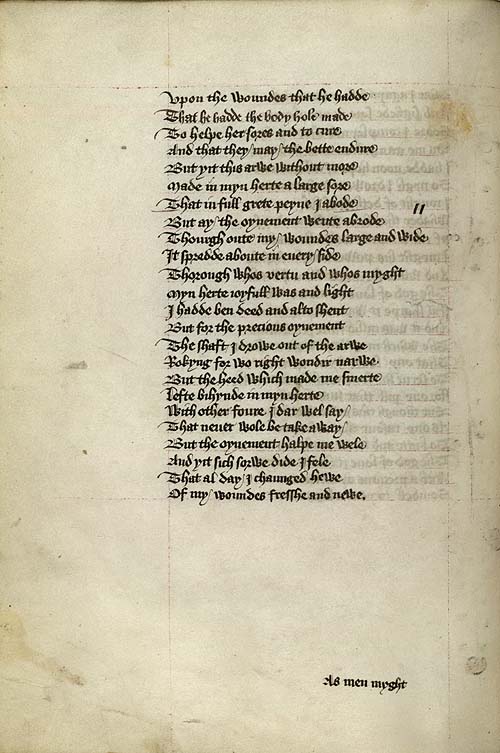 Vpon the woundes that he hadde
That he hadde the body hole made
To helpe her sores and to cure
And that they may the bette endure
But yit this arwe without more
Made in myn herte a large sore
That in full grete peyne I abode
But ay the oynement wente abrode
Thourgh oute my woundes large and wide
It spredde aboute in euery side
Thorough whos vertu and whos myght
Myn herte ioyfull was and light
I hadde ben deed and alto shent
But for the precious oynement
The shaft I drowe out of the arwe
Rokyng for wo right wondir narwe
But the heed which made me smerte
Lefte bihynde in myn herte
With other foure I dar wel say
That neuer wole be take away
But the oynement halpe me wele
And yit sich sorwe dide I fele
That al day I chaunged hewe
Of my woundes fresshe and newe.
As men myght